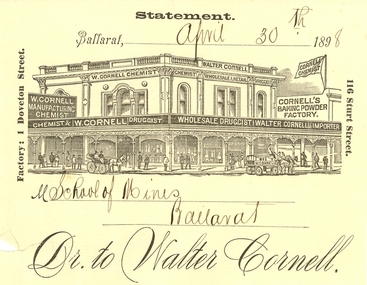 Statement.
Ballarat, April 30th 1898
Factory: 1 Doveton Street.
116 Sturt Street.
WALTER CORNELL
W. CORNELL CHEMIST
CHEMIST
WHOLESALE & RETAIL DRUGGIST
CORNELL CHEMIST
W. CORNELL
MANUFACTURING
CHEMIST
CORNELL'S
BAKING POWDER
FACTORY.
CHEMIST & W. CORNELL DRUGGIST
WHOLESALE DRUGGIST WALTER CORNELL IMPORTER
M School of Mines
Ballarat
Dr. to Walter Cornell.